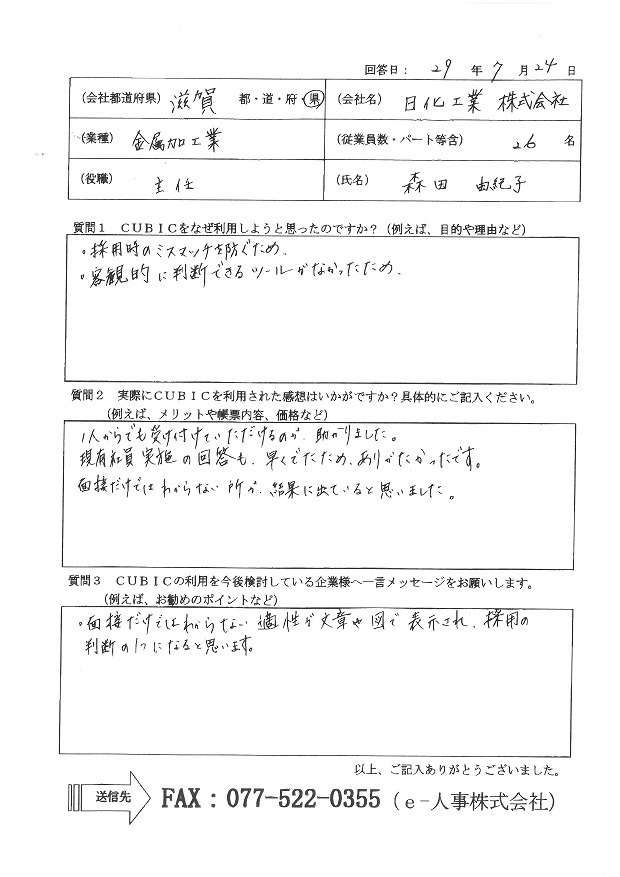 回答日： 29 年 7 月 24 日
（会社都道府県） 滋賀 都・道・府・県 （会社名） 日化工業 株式会社
（業種） 金属加工業 （従業員数・パート等含） 26 名
（役職） 主任 （氏名） 森田 由紀子
質問１　ＣＵＢＩＣをなぜ利用しようと思ったのですか？（例えば、目的や理由など）
・採用時のミスマッチを防ぐため.
・客観的に判断できるツールがなかったため.
質問２　実際にＣＵＢＩＣを利用された感想はいかがですか？具体的にご記入ください。
（例えば、メリットや帳票内容、価格など）
1人からでも受け付けていただけるのが、助かりました。
現有社員実施の回答も、早くでたため、ありがたかったです。
面接だけではわからない所が、結果に出ていると思いました。
質問３　ＣＵＢＩＣの利用を今後検討している企業様へ一言メッセージをお願いします。
（例えば、お勧めのポイントなど）
・面接だけではわからない適性が文章や図で表示され、採用の
判断の1つになると思います。
以上、ご記入ありがとうございました。
送信先 FAX：077-522-0355（ｅ-人事株式会社）